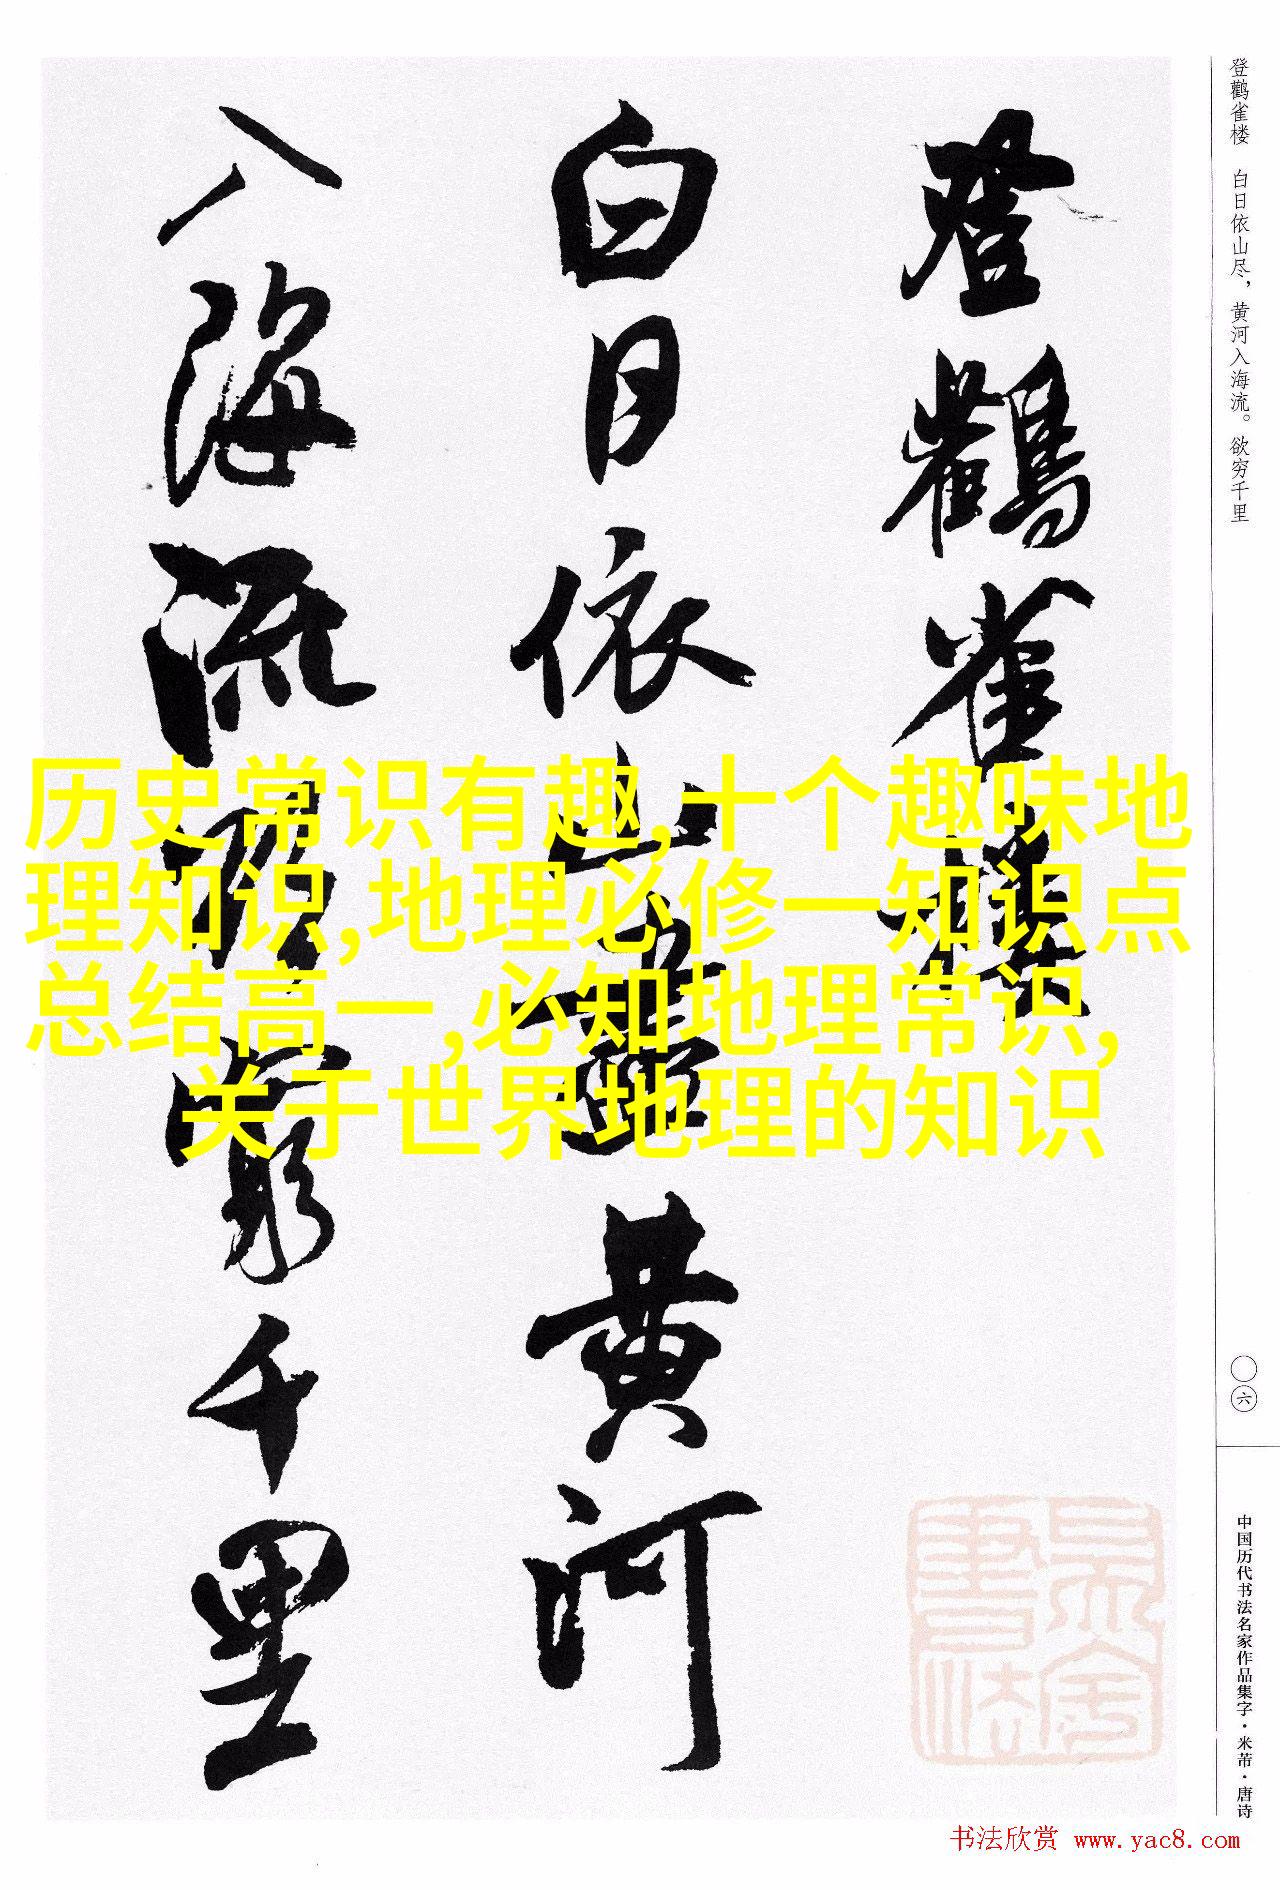 登鹳雀楼 白日依山尽，黄河入海流。欲穷千里
〇六
中国历代书法名家作品集字·米芾·唐诗
登鸛雀樓
白日依山盡黄河
入海流欲窮千里
历史常识有趣,十个趣味地
理知识,地理必修一知识点
总结高一,必知地理常识,
关于世界地理的知识
书法欣赏 www.yac8.com